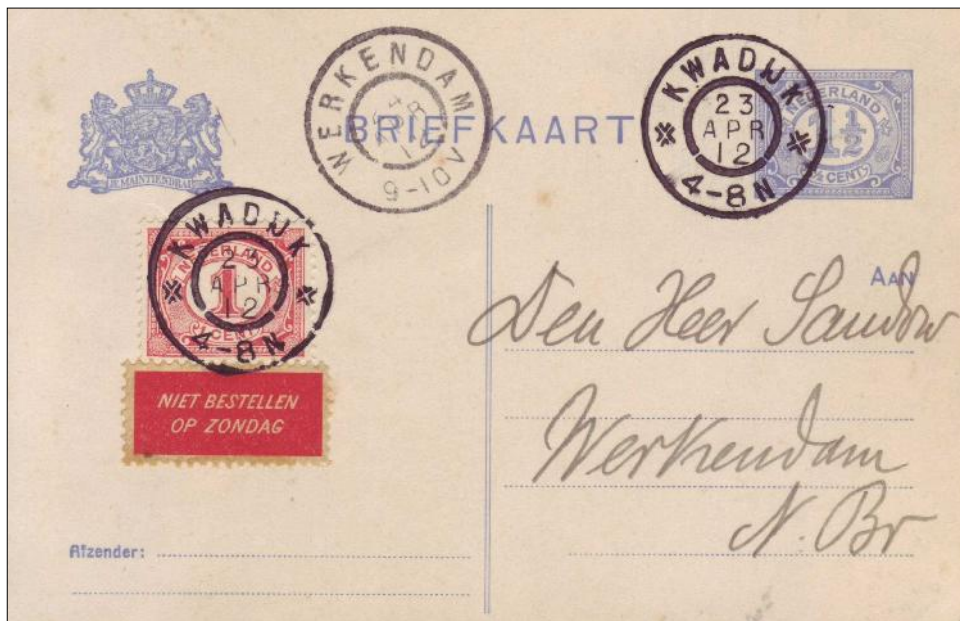 JE MAINTIENDRAI
BRIEFKAART
WERKENDAM
APR
12
9-10V
KWADIJK
23
APR
12
4-8N
NEDERLAND
1½
1½ CENT
KWADIJK
23
APR
12
4-8N
NEDERLAND
1
CENT
NIET BESTELLEN
OP ZONDAG
AAN
Den Heer Sandow
Werkendam
N. Br
Afzender: